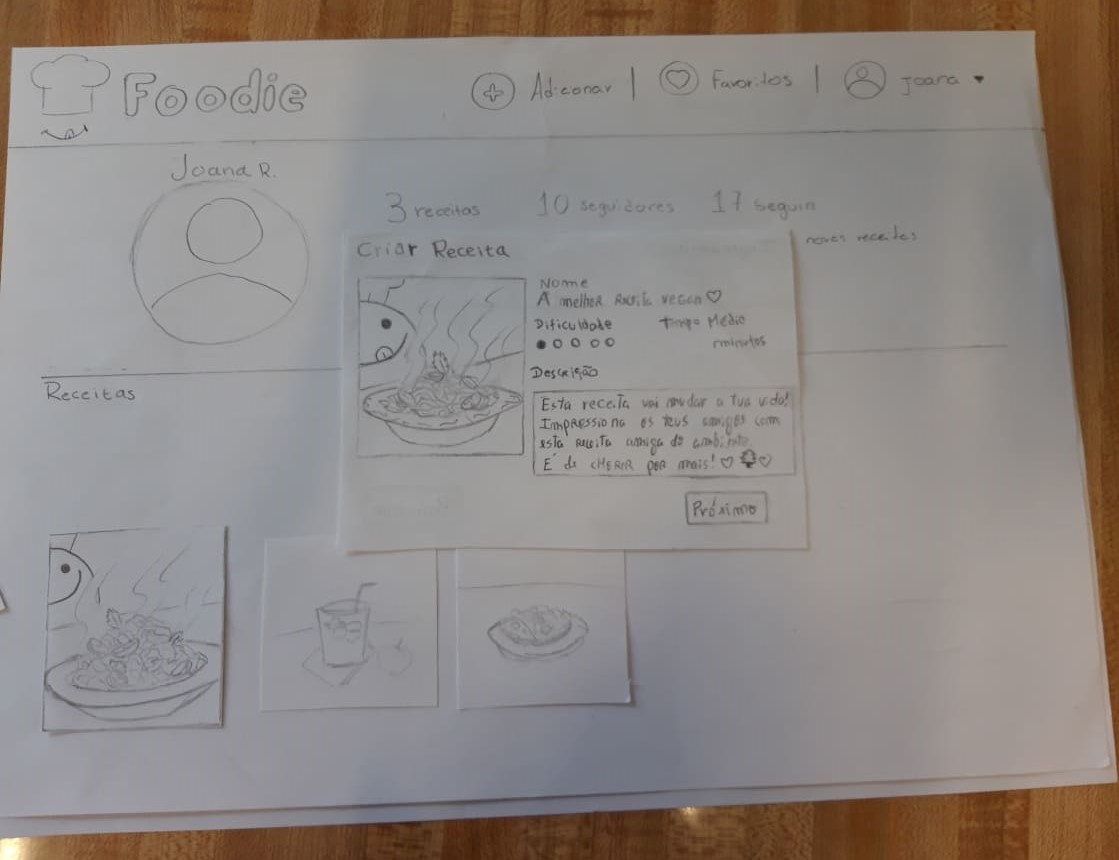 Foodie
Adicionar | Favoritos | Joana
Joana R.
3 receitas 10 seguidores 17 seguin
novas receitas
Criar Receita
Nome
A melhor receita vegan ♡
Dificuldade Tempo Médio
minutos
Descrição
Esta receita vai mudar a tua vida!
Impressiona os teus amigos com
esta receita amiga do ambiente.
É de cHERAR por mais! ♡ ♡
Próximo
Receitas